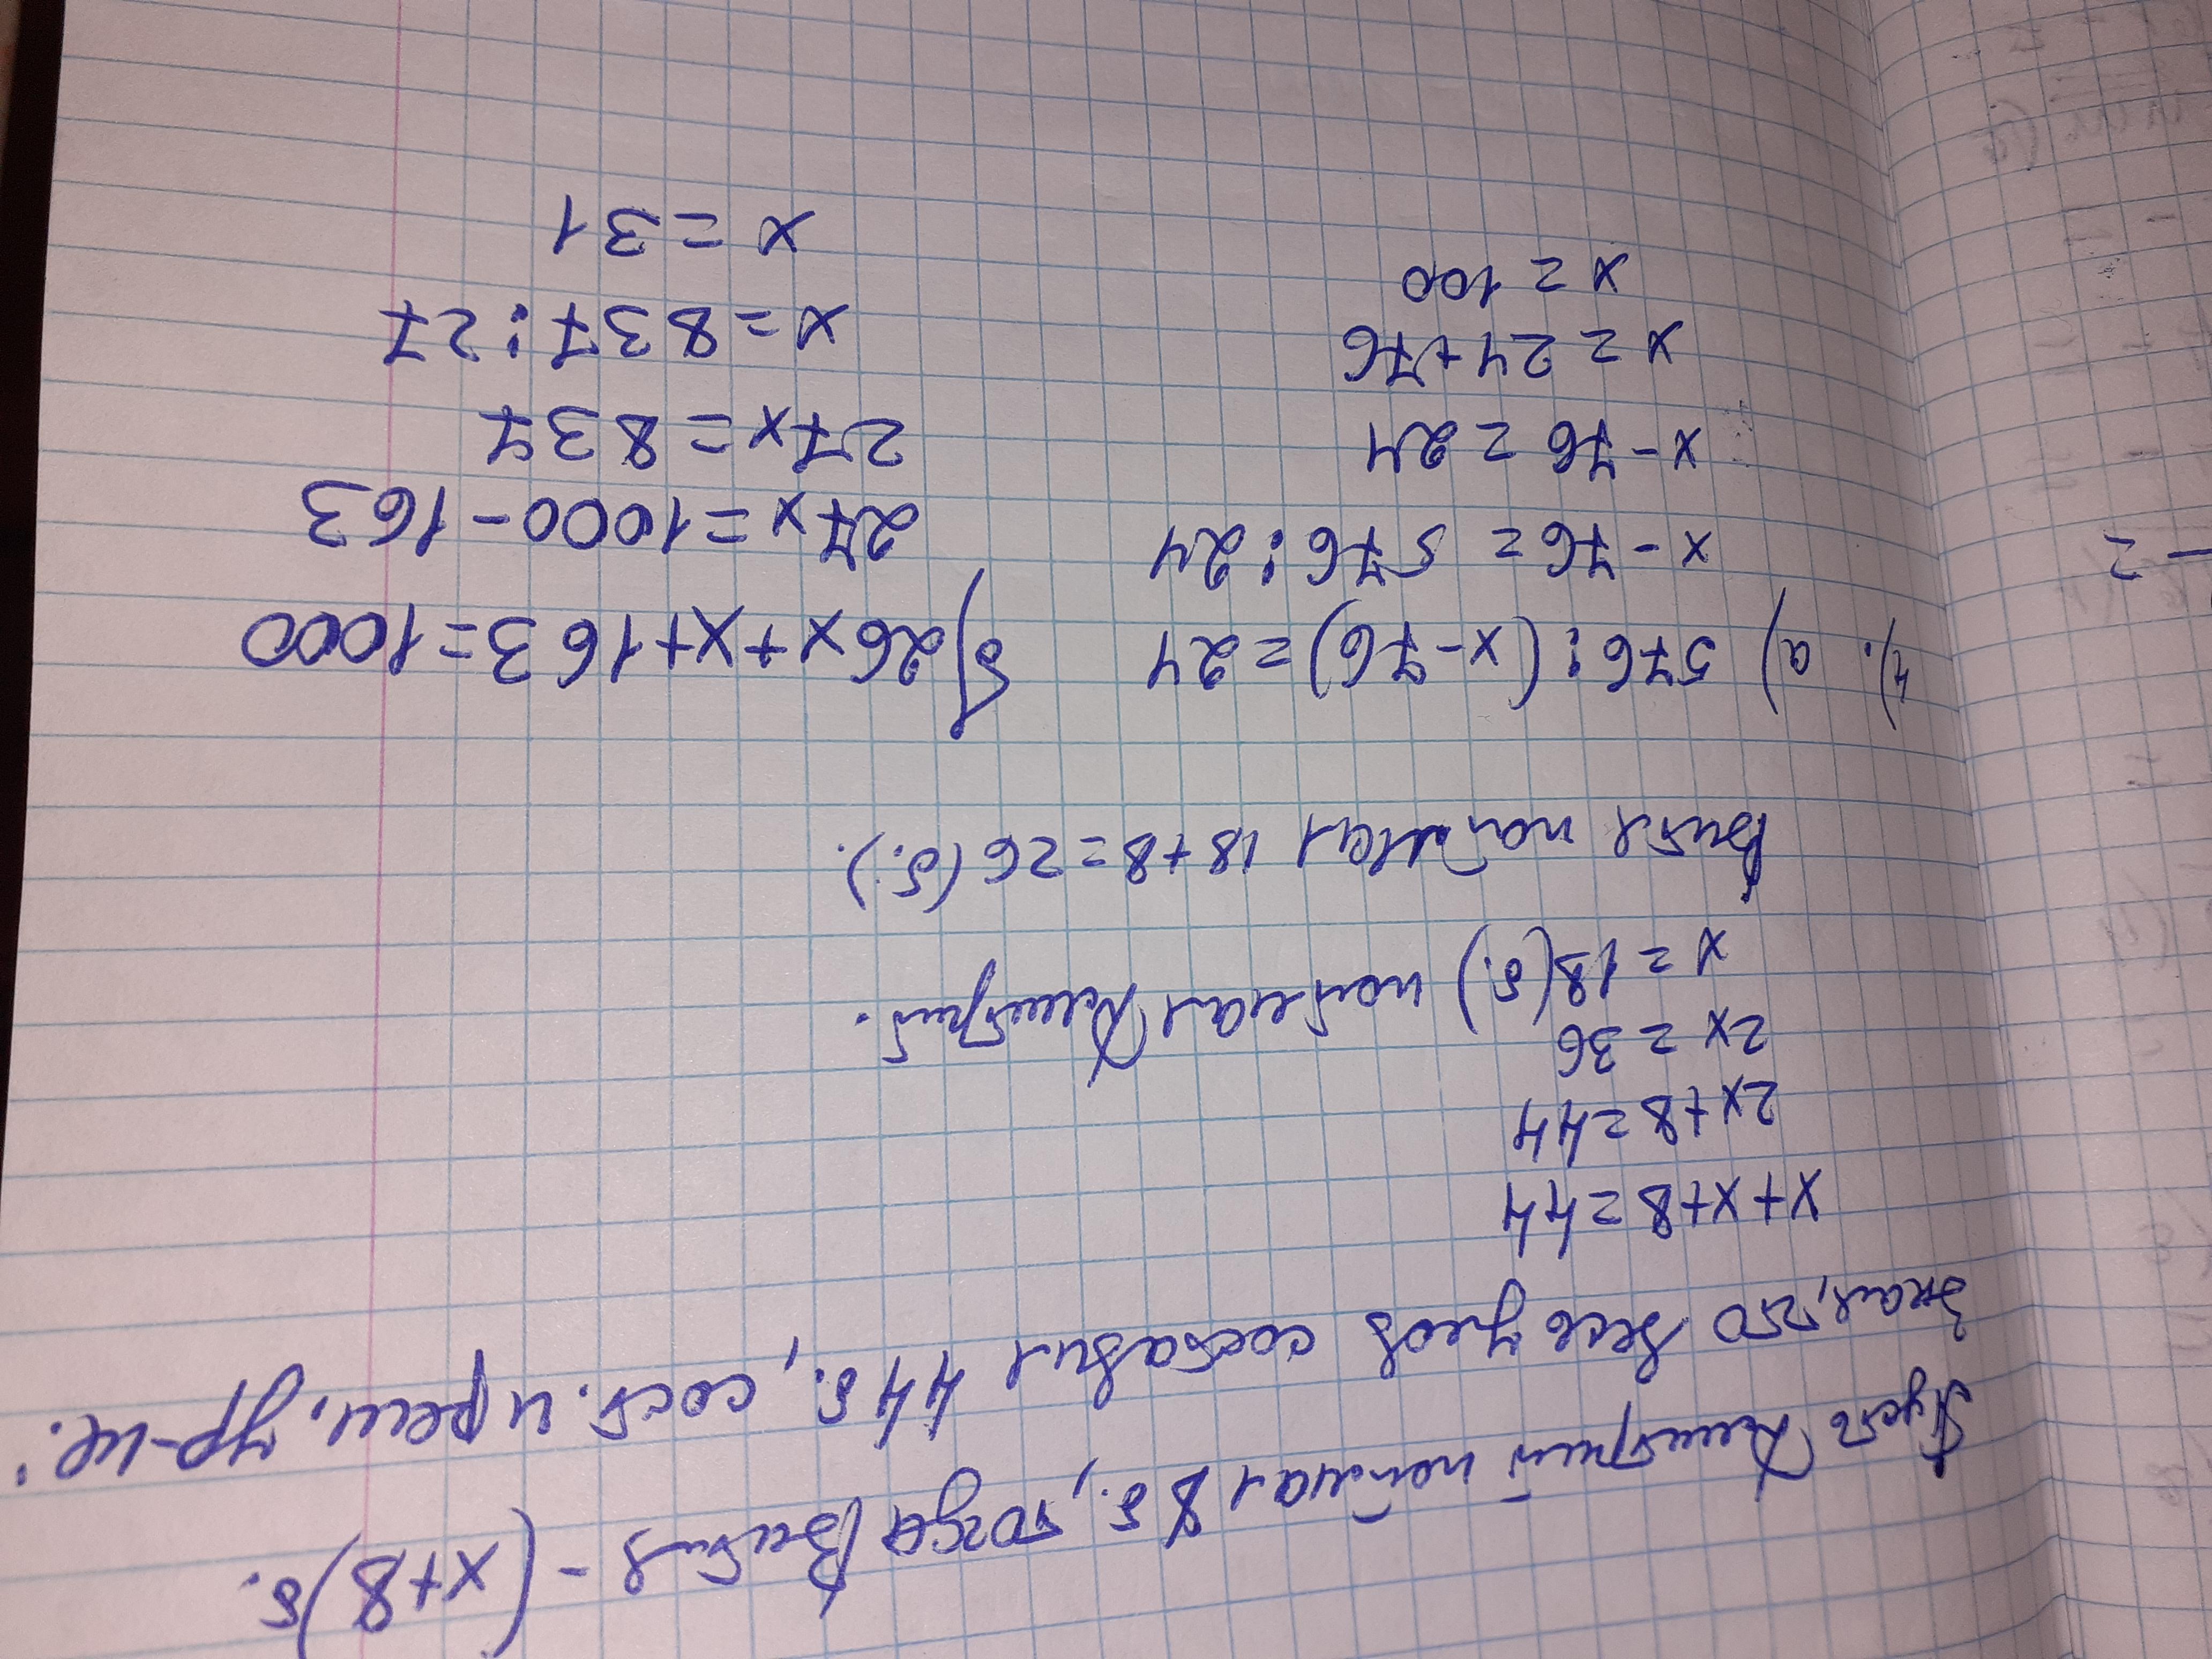 Пусть Дмитрий поймал х б., тогда Витя - (x+8) б.
Зная, что весь улов составил 44 б., сост. и реш. ур-ие:
x+x+8=44
2x+8=44
2x=36
x=18(б.) поймал Дмитрий.
Витя поймал 18+8=26(б.).
4). а) 576:(x-76)=24
x-76= 576:24
x-76=24
x=24+76
x=100
б)26x+x+163=1000
27x=1000-163
27x=837
x=837:27
x=31
-2